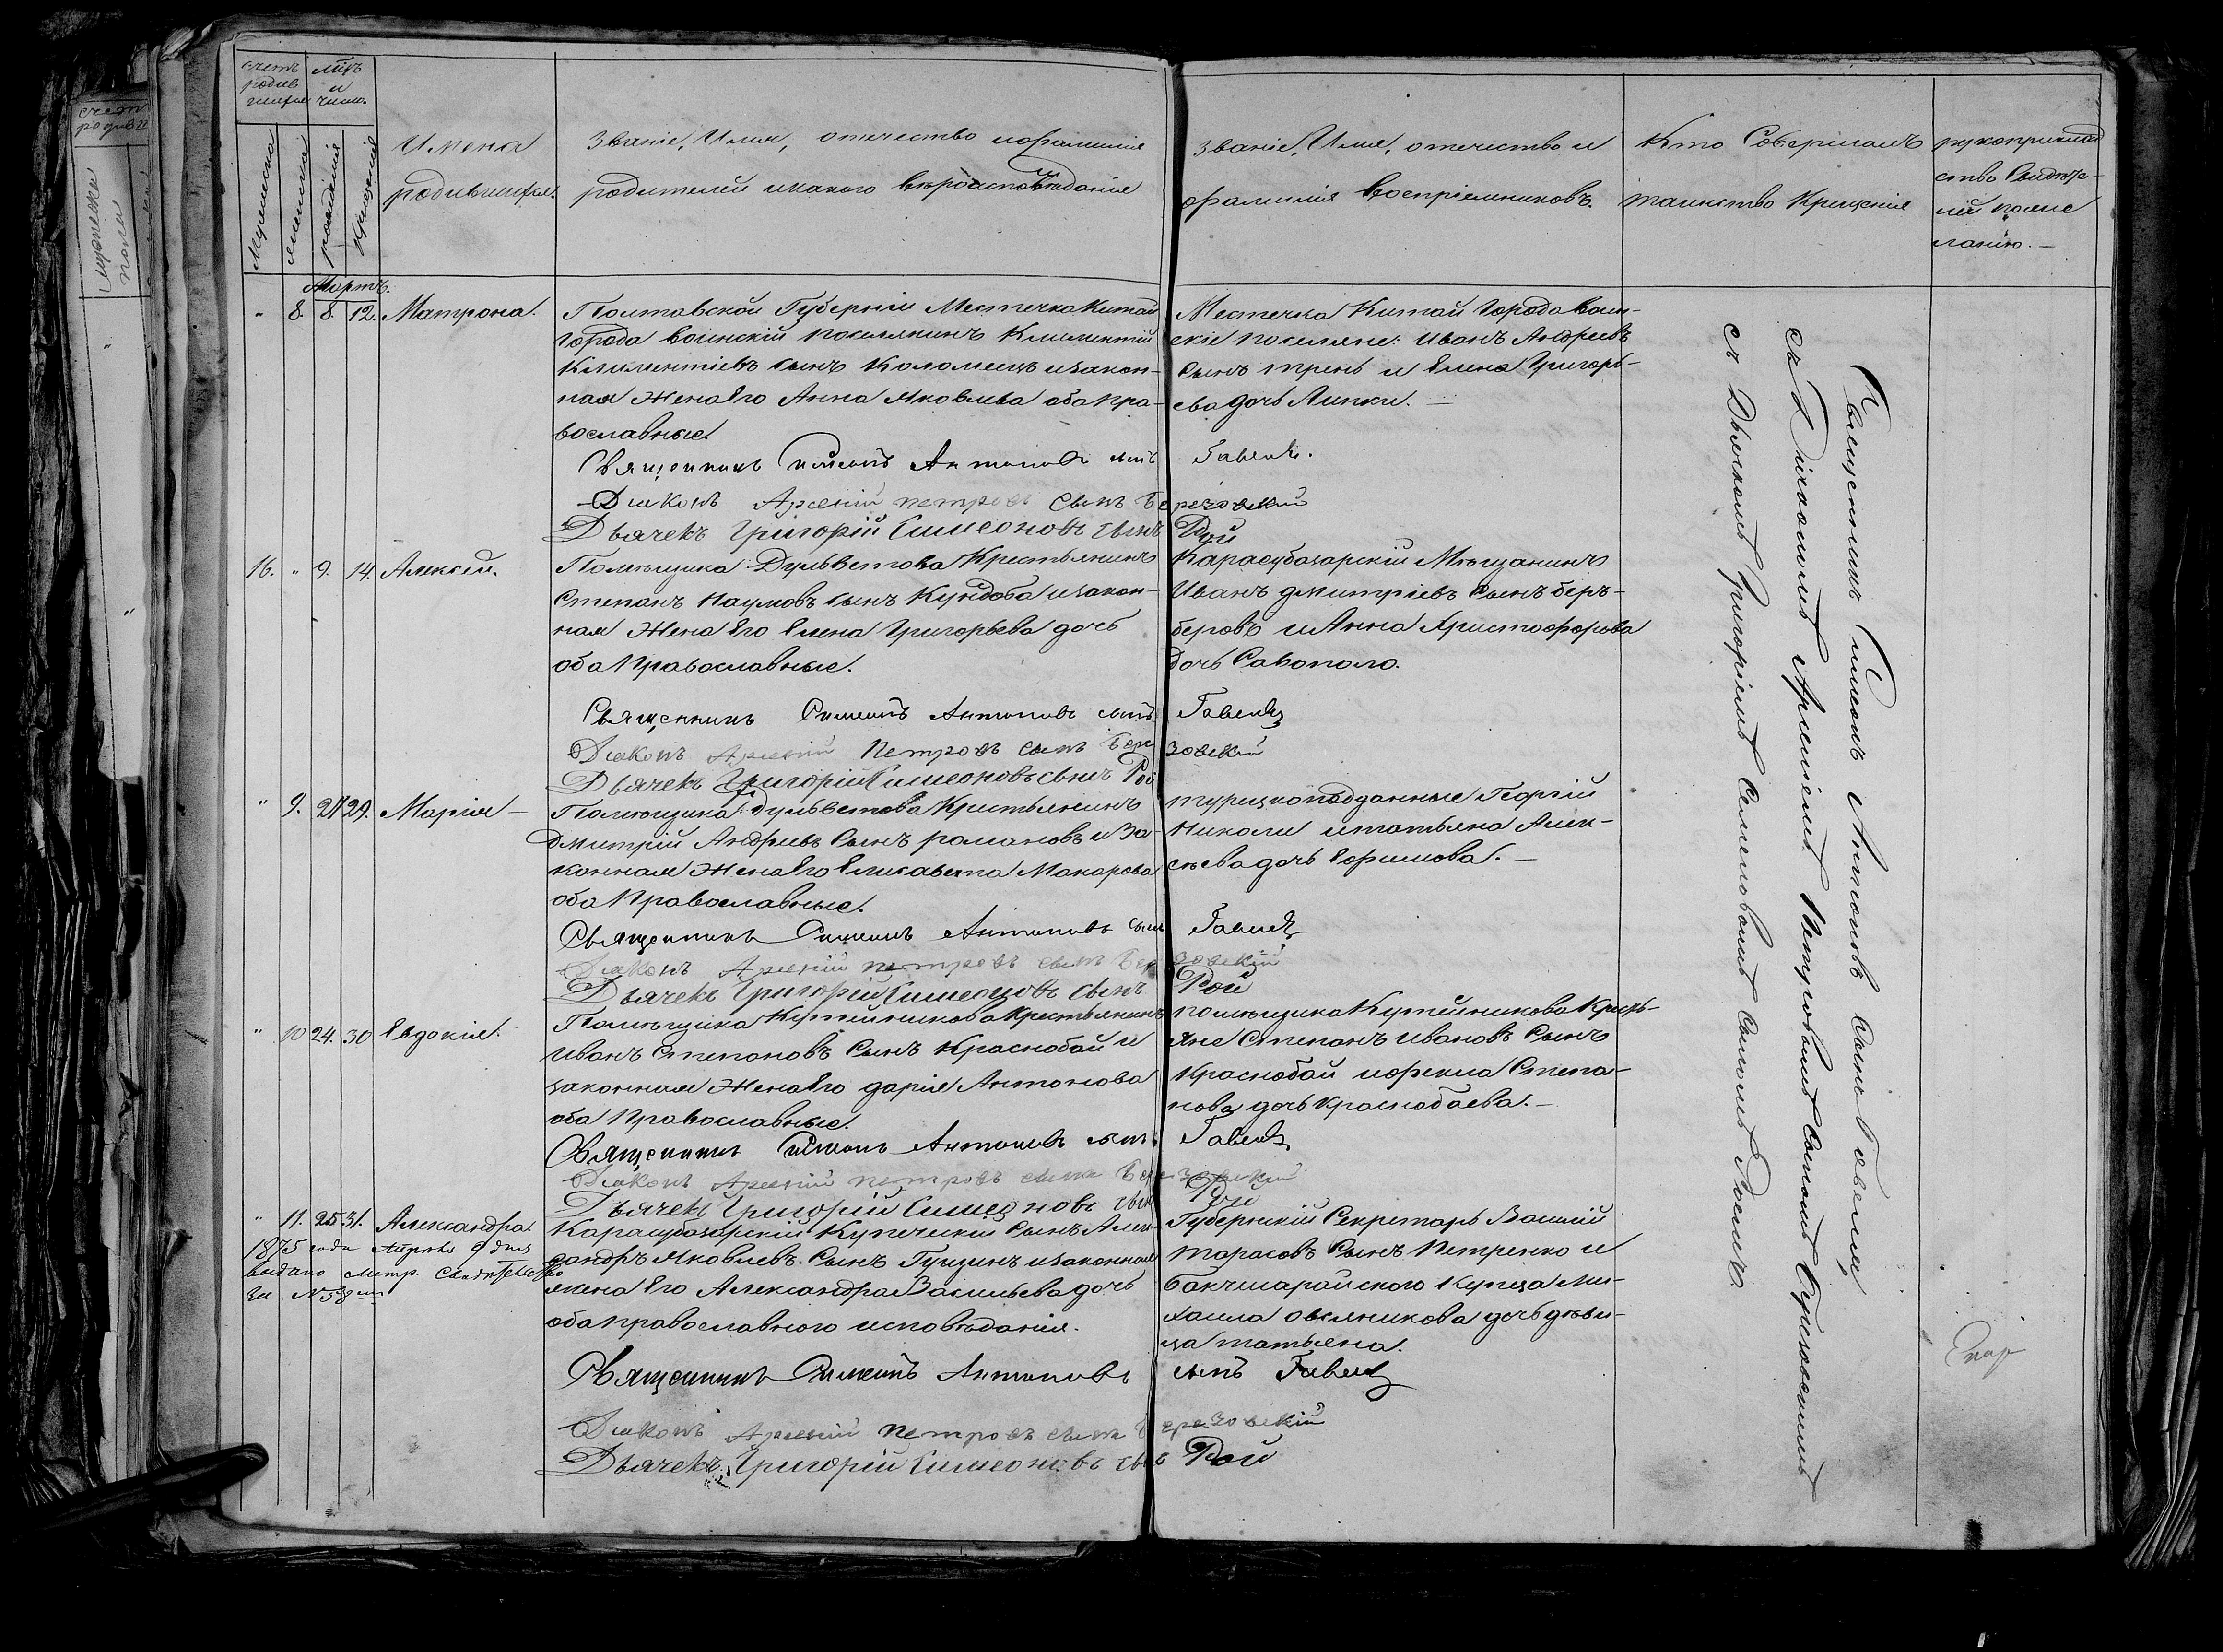 счетъ родив шихся
мцъ и число.
Мужеска
женска
рожденія
крещенія
Имена
родившихся.
Званіе, Имя, отечество и фамилія
родителей и какого вѣроисповѣданія
званіе, Имя, отечество и
фамилія воспріемниковъ.
Кто Совершалъ
таинство Крещенія
рукоприклад
ство Свидѣте-
лей по же
ланію. —
счетъ
родив
мужеска
пола
Мартъ.
" 8. 8. 12. Матрона.
Полтавской Губерніи Местечка Китай
города воинскій поселянинъ Климентій
Климентіевъ сынъ Коломецъ и закон-
ная Жена Его Анна Яковлева оба пра-
вославные.
Местечка Китай города воин-
скіе поселяне: Иванъ Андреевъ
Сынъ трень и Елена Григорь-
ева дочь Липки. —
Священникъ Симеонъ Антоновъ сынъ Гавель.
Діаконъ Арсеній петровъ сынъ Березовскій
Дьячекъ Григорій Симеоновъ сынъ Рой
16. " 9. 14. Алексѣй.
Помѣщика Дульветова Крестьянинъ
Степанъ Наумовъ сынъ Кундоба и закон-
ная Жена Его Елена Григорьева дочь
оба Православные.
Карасубазарскій Мѣщанинъ
Иванъ дмитріевъ Сынъ бер-
беровъ и Анна Христофорова
дочь Савополо.
Священникъ Симеонъ Антоновъ сынъ Гавель
Діаконъ Арсеній Петровъ сынъ Березовскій
Дьячекъ Григорій Симеоновъ сынъ Рой
" 9. 27 29. Марія —
Помѣщика Дульветова Крестьянинъ
Дмитрій Андреевъ Сынъ романовъ и За-
конная Жена Его Елисавета Макарова
оба Православные.
турецкоподданные Георгій
Николи и татьяна Алек-
сѣева дочь Ефимова. —
Священникъ Симеонъ Антоновъ сынъ Гавель
Діаконъ Арсеній петровъ сынъ Березовскій
Дьячекъ Григорій Симеоновъ сынъ Рой
" 10 24. 30 Евдокія.
Помѣщика Кутейникова Крестьянинъ
Иванъ Степановъ Сынъ Краснобай и
законная Жена Его дарія Антонова
оба Православные.
помѣщика Кутейникова Кресть-
яне Степанъ Ивановъ Сынъ
Краснобай и фекла Степа-
нова дочь Краснобаева. —
Священникъ Симеонъ Антоновъ сынъ Гавель
Діаконъ Арсеній петровъ сынъ Березовскій
Дьячекъ Григорій Симеоновъ сынъ Рой
" 11. 25. 31. Александра.
1875 года Апрѣля 9 дня
выдано Метр. Свидѣтельство
за №58
Карасубазарскій Купеческій Сынъ Алек-
сандръ Яковлевъ Сынъ Гущинъ и законная
жена Его Александра Васильева дочь
оба православного исповѣданія.
Губернскій Секретарь Василій
тарасовъ Сынъ Петренко и
бакчисарайского Купца Ми-
хаила овсяникова дочь дѣви-
ца татьяна.
Священникъ Симеонъ Антоновъ сынъ Гавель
Діаконъ Арсеній Петровъ сынъ Березовскій
Дьячекъ Григорій Симеоновъ сынъ Рой
Священникъ Симеонъ Антоновъ сынъ Гавель
съ Діакономъ Арсеніемъ Петровымъ сыномъ Березовскимъ
съ Дьячкомъ Григоріемъ Семеновымъ сыномъ Роемъ.